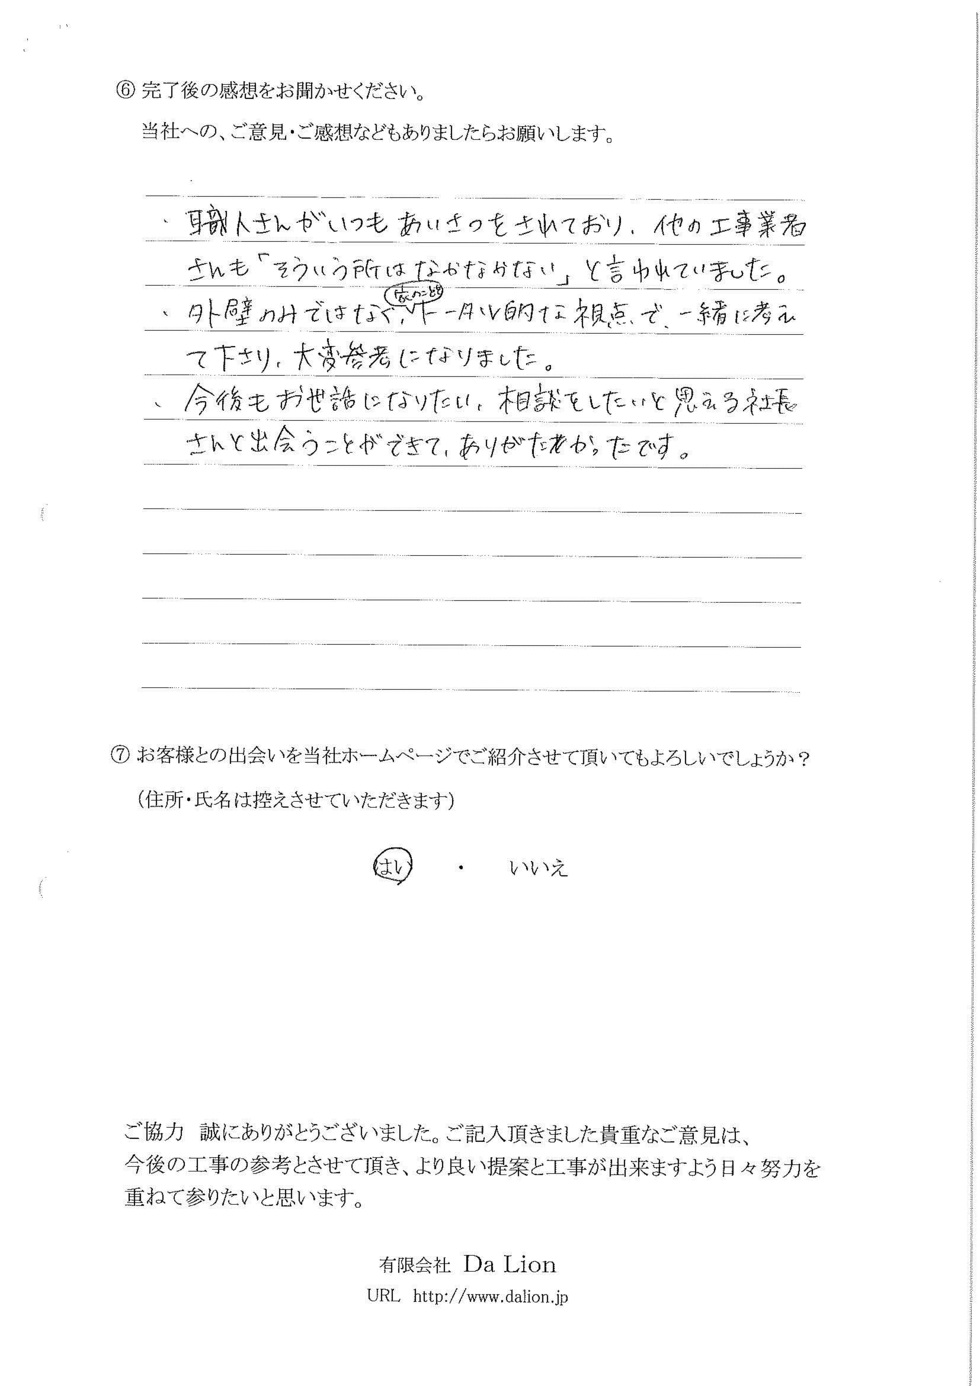 ⑥ 完了後の感想をお聞かせください。
当社への、ご意見・ご感想などもありましたらお願いします。
、職人さんがいつもあいさつをされており、他の工事業者
さんも「そういう所はなかなかない」と言われていました。
家のことを
、外壁のみではなく、トータル的な視点で、一緒に考え
て下さり、大変参考になりました。
、今後もお世話になりたい、相談をしたいと思える社長
さんと出会うことができて、ありがたかったです。
⑦ お客様との出会いを当社ホームページでご紹介させて頂いてもよろしいでしょうか？
（住所・氏名は控えさせていただきます）
はい ・ いいえ
ご協力　誠にありがとうございました。ご記入頂きました貴重なご意見は、
今後の工事の参考とさせて頂き、より良い提案と工事が出来ますよう日々努力を
重ねて参りたいと思います。
有限会社 Da Lion
URL http://www.dalion.jp